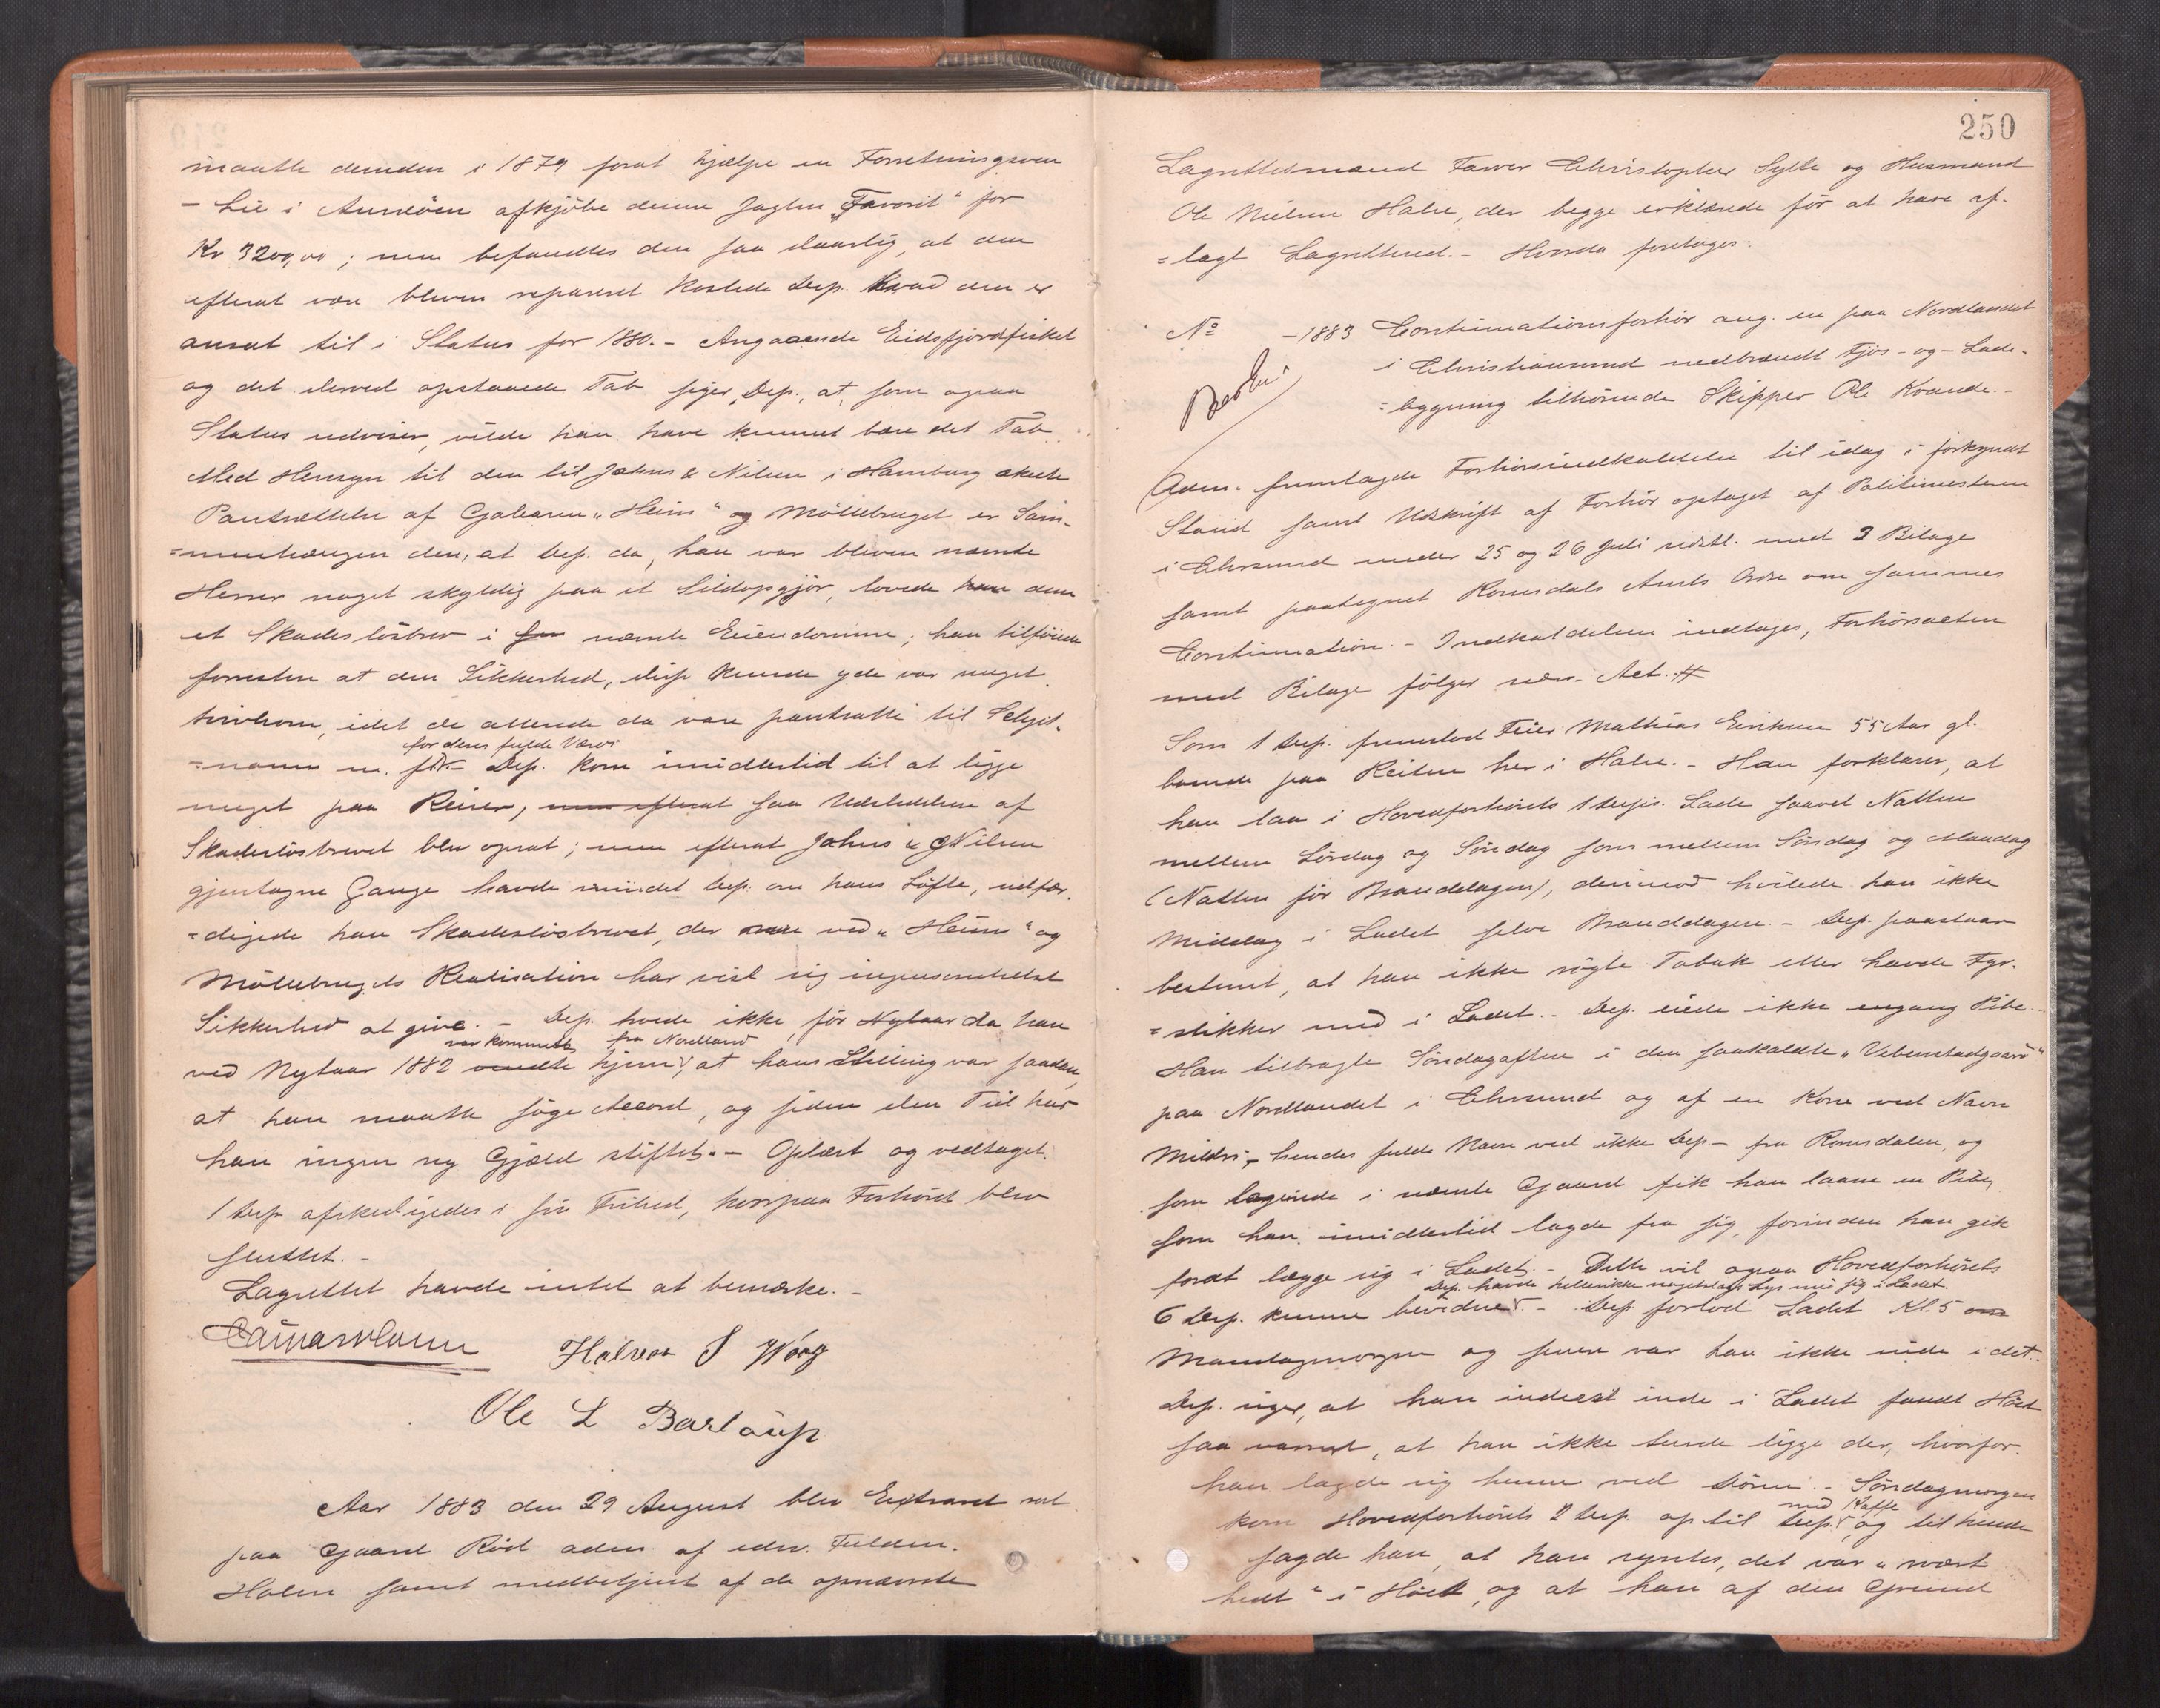 maatte desuden i 1879 forat hjælpe en Forretningsven
- Lie i Aureöen afkjöbe denne Jagten "Favorit" for
Kr 3200,00; men befandtes den saa daarlig, at den
efterat være bleven repareret kostede Dep. hvad den er
ansat til i Status for 1880. - Angaaende Eidsfjordfisket
og det derved opstaaede Tab siger Dep., at, som ogsaa
Status udviser, vilde han have kunnet bære det Tab.
Med Hensyn til den til Johns & Nilsen i Hamburg skete
Pantsættelse af Galeasen "Heim" og Möllebruget er Sam-
=menhængen den, at Dep. da han var bleven nævnte
Herrer noget skyldig paa et Sildopgjör, lovede han dem
et Skadeslösbrev i nævnte Eiendomme; han tilföiede
forresten at den Sikkerhed, Dep kunde yde var meget
tvivlsom, idet de allerede da vare pantsatte til
=nann m. fl. for deres fulde Værdi - Dep. kom imidlertid til at ligge
meget paa Reiser, men efterat saa Udstedelsen af
Skadeslösbrevet blev opsat; men efterat Johns & Nilsen
gjentagne Gange havde mindet Dep. om hans Löfte, udfær-
=digede han Skadeslösbrevet, der ved "Heim" og
Möllebrugets Realisation har vist sig ingensomhelst
Sikkerhed at give. - Dep. troede ikke för Nytaar da han
ved Nytaar 1882 var kommet hjem fra Nordland, at hans Stilling var saadan,
at han maatte söge Accord, og siden den Tid har
han ingen ny Gjæld stiftet. - Oplæst og vedtaget.
1 Dep afskedigedes i fri Frihed, hvorpaa Forhöret blev
sluttet. -
Lagrettet havde intet at bemærke. -
Halvor S Waag
Ole L Bastöup
Aar 1883 den 29 August blev Extraret sat
paa Gaard Röd adm. af edsv. Fuldm.
Holm samt medbetjent af de opnævnte
250
Lagrettesmænd Farver Christopher Sylte og Husmand
Ole Nielsen Halse, der begge erklærede för at have af-
=lagt Lagretteed. - Hvorda foretoges:
No - 1883 Continuationsforhör ang. en paa Nordlandet
i Christiansund nedbrændt Fjös- og Lade-
=bygning tilhörende Skipper Ole Kvande. -
Adm. fremlagde Forhörsindkaldelse til idag i forkyndt
Stand samt Udskrift af Forhör optaget af Politimesteren
i Chrsund under 25 og 26 Juli sidstl. med 3 Bilage
samt paategnet Romsdals Amts Ordre om sammes
Continuation. - Indkaldelsen indtages, Forhörsacten
med Bilage fölger nærv. Act. #
Som 1 Dep. fremstod Feier Mathias Eriksen 55 Aar gl.
boende paa Reiten her i Halse. - Han forklarer, at
han laa i Hovedforhörets 1 Deps. Lade saavel Natten
mellem Lördag og Söndag som mellem Söndag og Mandag
(Natten för Branddagen), derimod hvilede han ikke
Middag i Ladet selve Branddagen. - Dep. paastaar
bestemt, at han ikke rögte Tobak eller havde Fyr-
=stikker med i Ladet. - Dep. eiede ikke engang Pibe. -
Han tilbragte Söndagaften i den saakaldte "Vebenstadgaard"
paa Nordlandet i Chrsund og af en Kone ved Navn
Mildri, - hendes fulde Navn ved ikke Dep - fra Romsdalen, og
som logerede i nævnte Gaard fik han laane en Pibe,
som han imidlertid lagde fra sig, forinden han gik
forat lægge sig i Ladet. - Dette vil ogsaa Hovedforhörets
6 Dep. kunne bevidne. Dep. havde hellerikke nogetslags Lys med sig i Ladet. - Dep. forlod Ladet Kl. 5 om
Mandagmorgen og senere var han ikke inde i det. -
Dep. siger, at han inderst inde i Ladet fandt Höet
saa varmt, at han ikke turde ligge der, hvorfor
han lagde sig henne ved Dören. - Söndagmorgen
kom Hovedforhörets 2 Dep. op til Dep. med Kaffe og til hende
sagde han, at han syntes, det var "svært
hedt" i Höet, og at han af den Grund